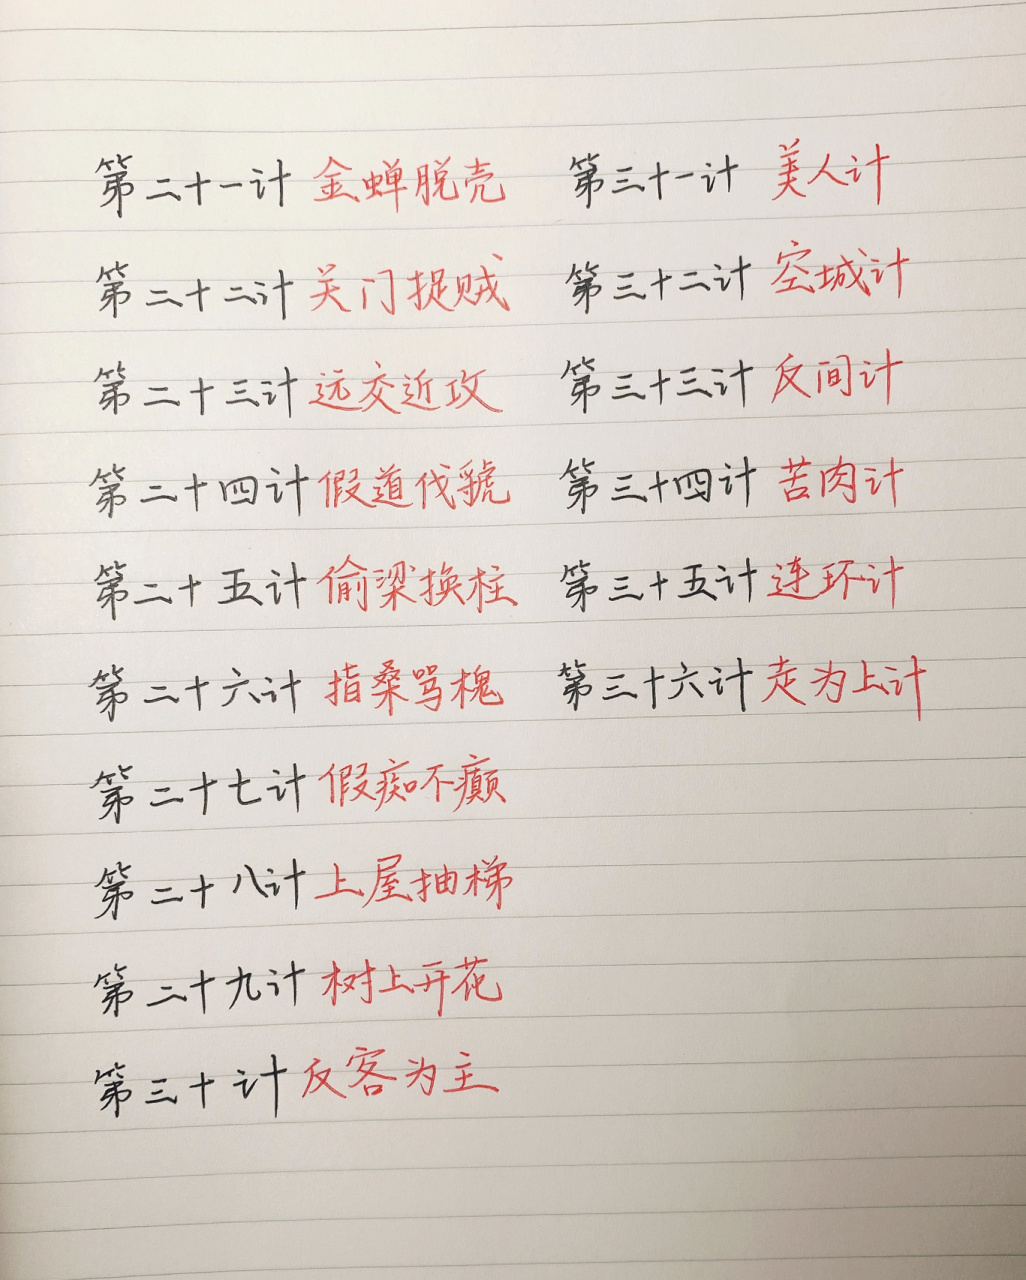 第二十一计 金蝉脱壳
第二十二计 关门捉贼
第二十三计 远交近攻
第二十四计 假道伐虢
第二十五计 偷梁换柱
第二十六计 指桑骂槐
第二十七计 假痴不癫
第二十八计 上屋抽梯
第二十九计 树上开花
第三十计 反客为主
第三十一计 美人计
第三十二计 空城计
第三十三计 反间计
第三十四计 苦肉计
第三十五计 连环计
第三十六计 走为上计